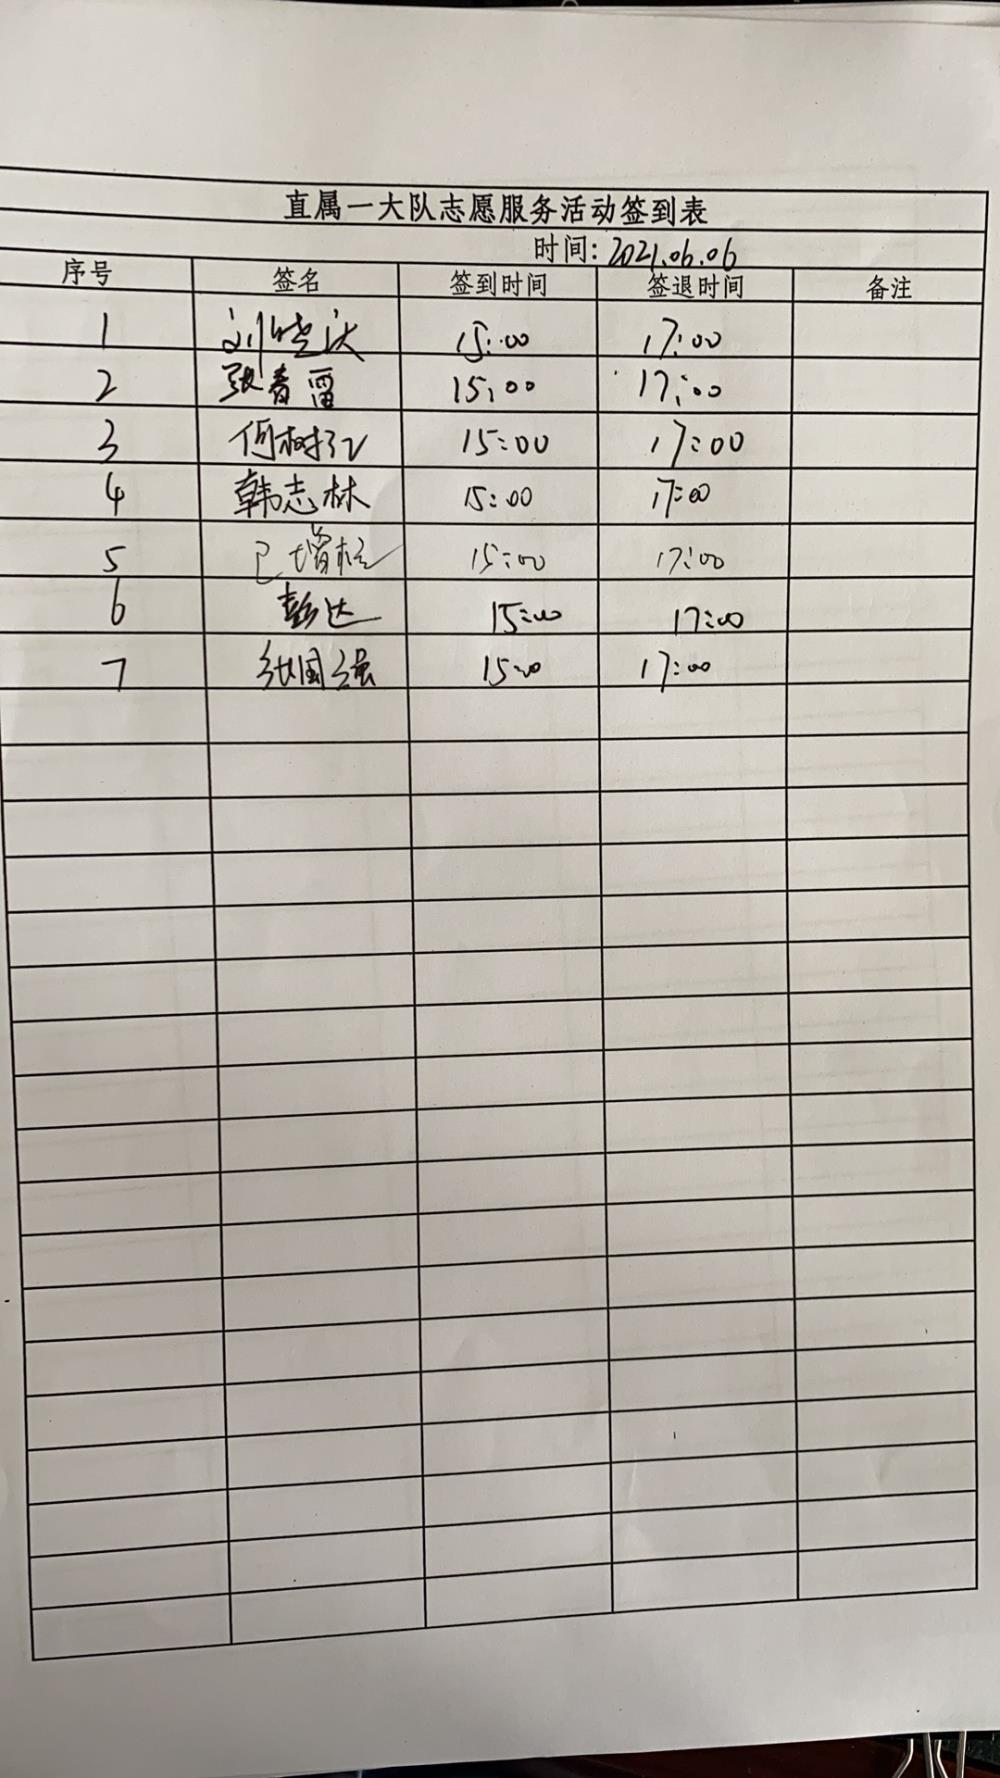 直属一大队志愿服务活动签到表
时间：2021.06.06
序号 签名 签到时间 签退时间 备注
1 刘晓庆 15:00 17:00
2 张春雷 15:00 17:00
3 何树江 15:00 17:00
4 韩志林 15:00 17:00
5 15:00 17:00
6 彭达 15:00 17:00
7 张国强 15:00 17:00